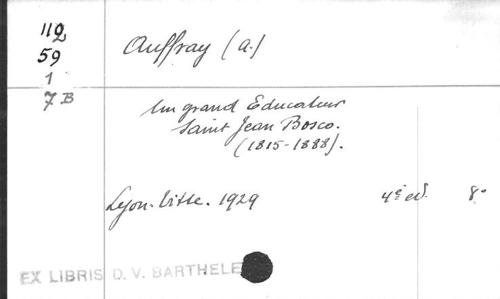 112
59
1
7 B
Auffray (A.)
Un grand Educateur
Saint Jean Bosco.
(1815-1888).
Lyon. Vitte. 1929 4e ed. 8°
EX LIBRIS D. V. BARTHELE